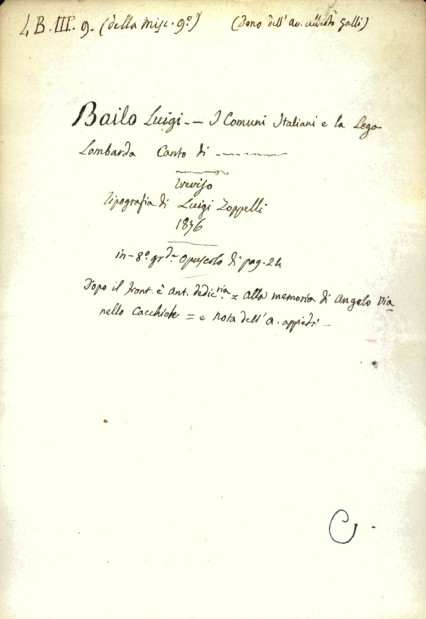 4 B. III. 9. (della Misc. 9ª) (Dono dell'av. Galli)
Bailo Luigi - - I Comuni Italiani e la Lega
Lombarda Canto di - - - - -
Treviso
Tipografia di Luigi Zoppelli
1876
in - 8º. grde opuscolo di pag. 24
Dopo il front. è ant. dedicria. = alla memoria di Angelo Via
nello Cacchiole = e nota dell'A. appiedi -
C